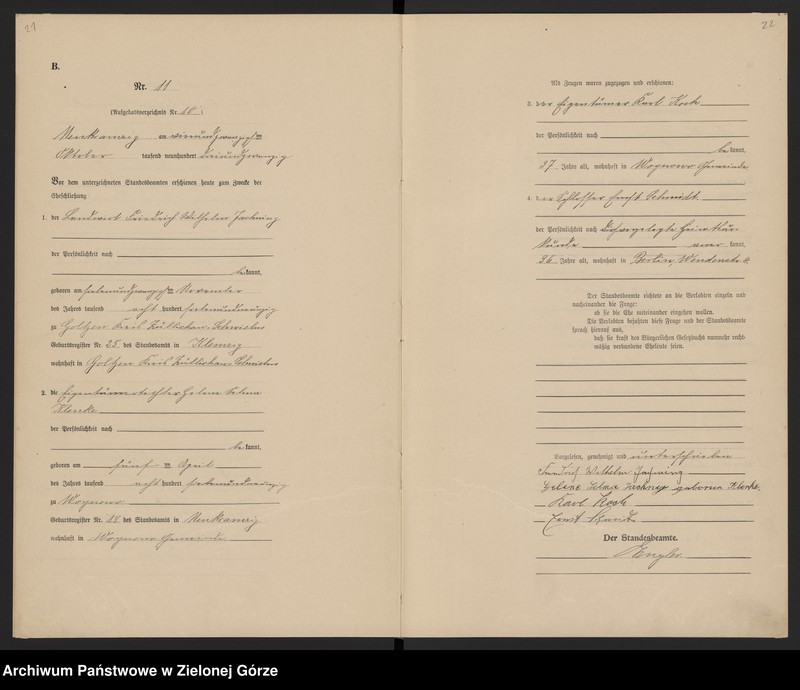 21
B.
Nr. 11
(Aufgebotsverzeichnis Nr. 10)
am vierundzwanzigsten
Oktober tausend neunhundert dreiundzwanzig
Vor dem unterzeichneten Standesbeamten erschienen heute zum Zwecke der
Eheschließung
1. der Landwirt Friedrich Wilhelm
der Persönlichkeit nach
bekannt,
geboren am siebenundzwanzigsten November
des Jahres tausend acht hundert siebenundneunzig
zu Goltzen Kreis Züllichau-Schwiebus
Geburtsregister Nr. 25 des Standesamts in Klemzig
wohnhaft in Goltzen Kreis Züllichau-Schwiebus
2. die Eigentümertochter Helene Selma
Klenke
der Persönlichkeit nach
bekannt,
geboren am fünften April
des Jahres tausend acht hundert siebenundneunzig
zu Woynowo
Geburtsregister Nr. des Standesamts in
wohnhaft in Woynowo Gemeinde
22
Als Zeugen waren zugezogen und erschienen:
3. der Eigentümer Karl Kock
der Persönlichkeit nach
bekannt,
27 Jahre alt, wohnhaft in Woynowo Gemeinde
4. der Schlosser Ernst Schmidt
der Persönlichkeit nach
kannt,
26 Jahre alt, wohnhaft in Berlin,
Der Standesbeamte richtete an die Verlobten einzeln und
nacheinander die Frage:
ob sie die Ehe miteinander eingehen wollen.
Die Verlobten bejahten diese Frage und der Standesbeamte
sprach hierauf aus,
daß sie kraft des Bürgerlichen Gesetzbuchs nunmehr recht-
mäßig verbundene Eheleute seien.
Vorgelesen, genehmigt und unterschrieben
Friedrich Wilhelm
Helene Selma geborene Klenke.
Karl Kock
Ernst Schmidt
Der Standesbeamte.
Archiwum Państwowe w Zielonej Górze